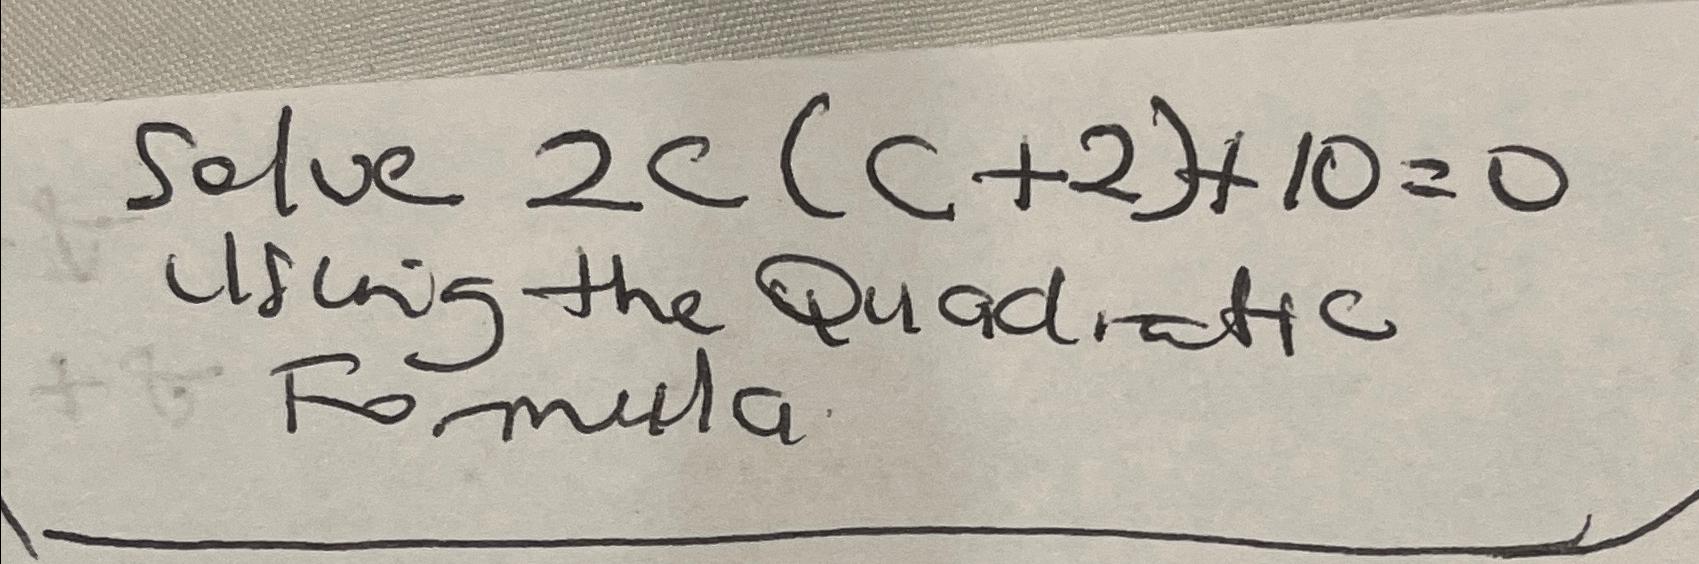 Solve 2C(C+2)+10=0
Using the Quadratic
Formula.